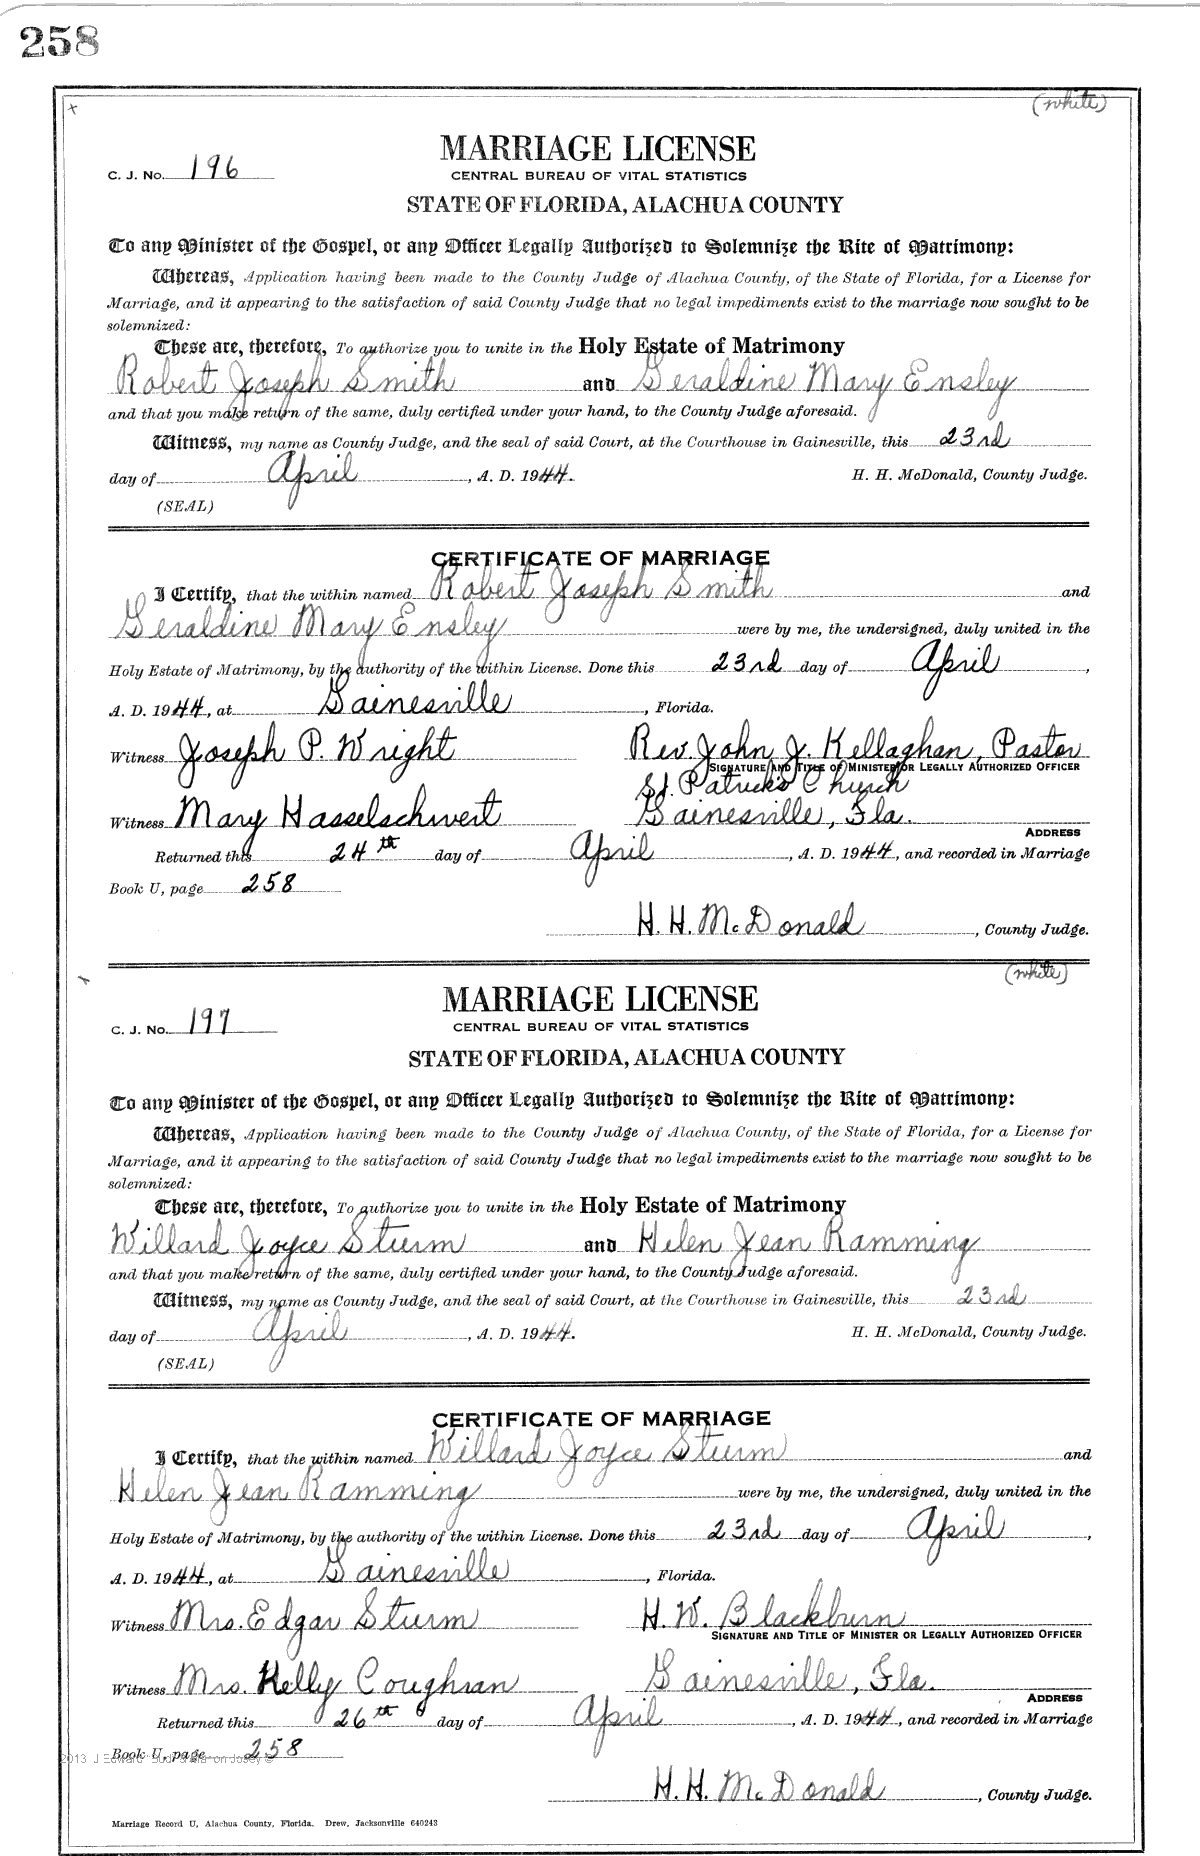 258
(white)
MARRIAGE LICENSE
C. J. No. 196
CENTRAL BUREAU OF VITAL STATISTICS
STATE OF FLORIDA, ALACHUA COUNTY
To any Minister of the Gospel, or any Officer Legally Authorized to Solemnize the Rite of Matrimony:
Whereas, Application having been made to the County Judge of Alachua County, of the State of Florida, for a License for
Marriage, and it appearing to the satisfaction of said County Judge that no legal impediments exist to the marriage now sought to be
solemnized:
These are, therefore, To authorize you to unite in the Holy Estate of Matrimony
Robert Joseph Smith and Geraldine Mary Ensley
and that you make return of the same, duly certified under your hand, to the County Judge aforesaid.
Witness, my name as County Judge, and the seal of said Court, at the Courthouse in Gainesville, this 23rd
day of April, A. D. 1944. H. H. McDonald, County Judge.
(SEAL)
CERTIFICATE OF MARRIAGE
I Certify, that the within named Robert Joseph Smith and
Geraldine Mary Ensley were by me, the undersigned, duly united in the
Holy Estate of Matrimony, by the authority of the within License. Done this 23rd day of April,
A. D. 1944, at Gainesville, Florida.
Witness Joseph P. Wright Rev. John J. Kellaghan, Pastor
SIGNATURE AND TITLE OF MINISTER OR LEGALLY AUTHORIZED OFFICER
St. Patrick's Church
Witness Mary Hasselschwert Gainesville, Fla.
ADDRESS
Returned this 24th day of April, A. D. 1944, and recorded in Marriage
Book U, page 258
H. H. McDonald, County Judge.
(white)
MARRIAGE LICENSE
C. J. No. 197
CENTRAL BUREAU OF VITAL STATISTICS
STATE OF FLORIDA, ALACHUA COUNTY
To any Minister of the Gospel, or any Officer Legally Authorized to Solemnize the Rite of Matrimony:
Whereas, Application having been made to the County Judge of Alachua County, of the State of Florida, for a License for
Marriage, and it appearing to the satisfaction of said County Judge that no legal impediments exist to the marriage now sought to be
solemnized:
These are, therefore, To authorize you to unite in the Holy Estate of Matrimony
Willard Joyce Sturm and Helen Jean Ramming
and that you make return of the same, duly certified under your hand, to the County Judge aforesaid.
Witness, my name as County Judge, and the seal of said Court, at the Courthouse in Gainesville, this 23rd
day of April, A. D. 1944. H. H. McDonald, County Judge.
(SEAL)
CERTIFICATE OF MARRIAGE
I Certify, that the within named Willard Joyce Sturm and
Helen Jean Ramming were by me, the undersigned, duly united in the
Holy Estate of Matrimony, by the authority of the within License. Done this 23rd day of April,
A. D. 1944, at Gainesville, Florida.
Witness Mrs. Edgar Sturm H. W. Blackburn
SIGNATURE AND TITLE OF MINISTER OR LEGALLY AUTHORIZED OFFICER
Witness Mrs. Kelly Coughran Gainesville, Fla.
ADDRESS
Returned this 26th day of April, A. D. 1944, and recorded in Marriage
Book U, page 258
2013 J Edward
H. H. McDonald, County Judge.
Marriage Record U, Alachua County, Florida. Drew, Jacksonville 640243